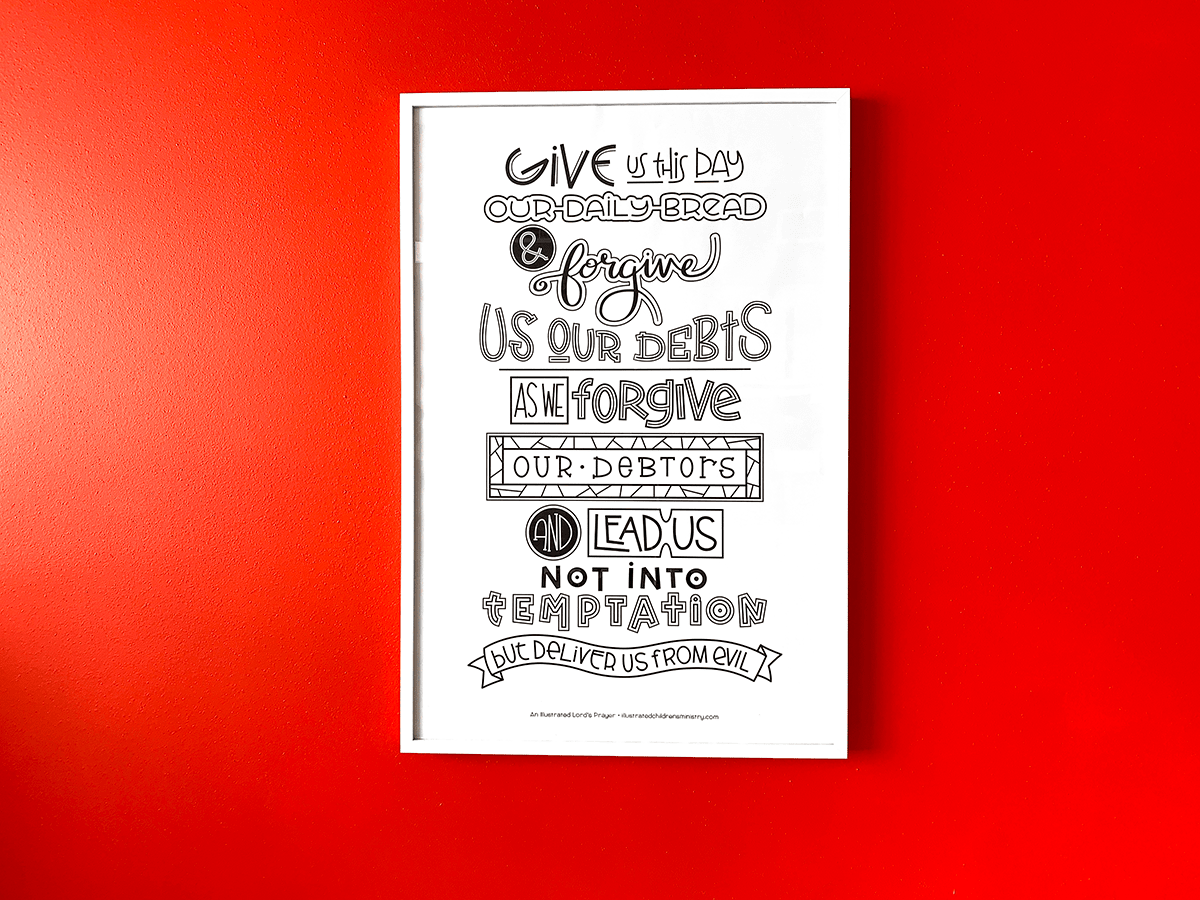 GiVE us this DAY
OUR-DAiLY-BREAD
& forgive
US OUR DEBtS
AS WE fORgiVE
OUR·DEBTORS
AND LEAD US
NOT iNTO
tEMPTAtiON
but DELiVER US fROM EViL
An Illustrated Lord's Prayer • illustratedchildrensministry.com